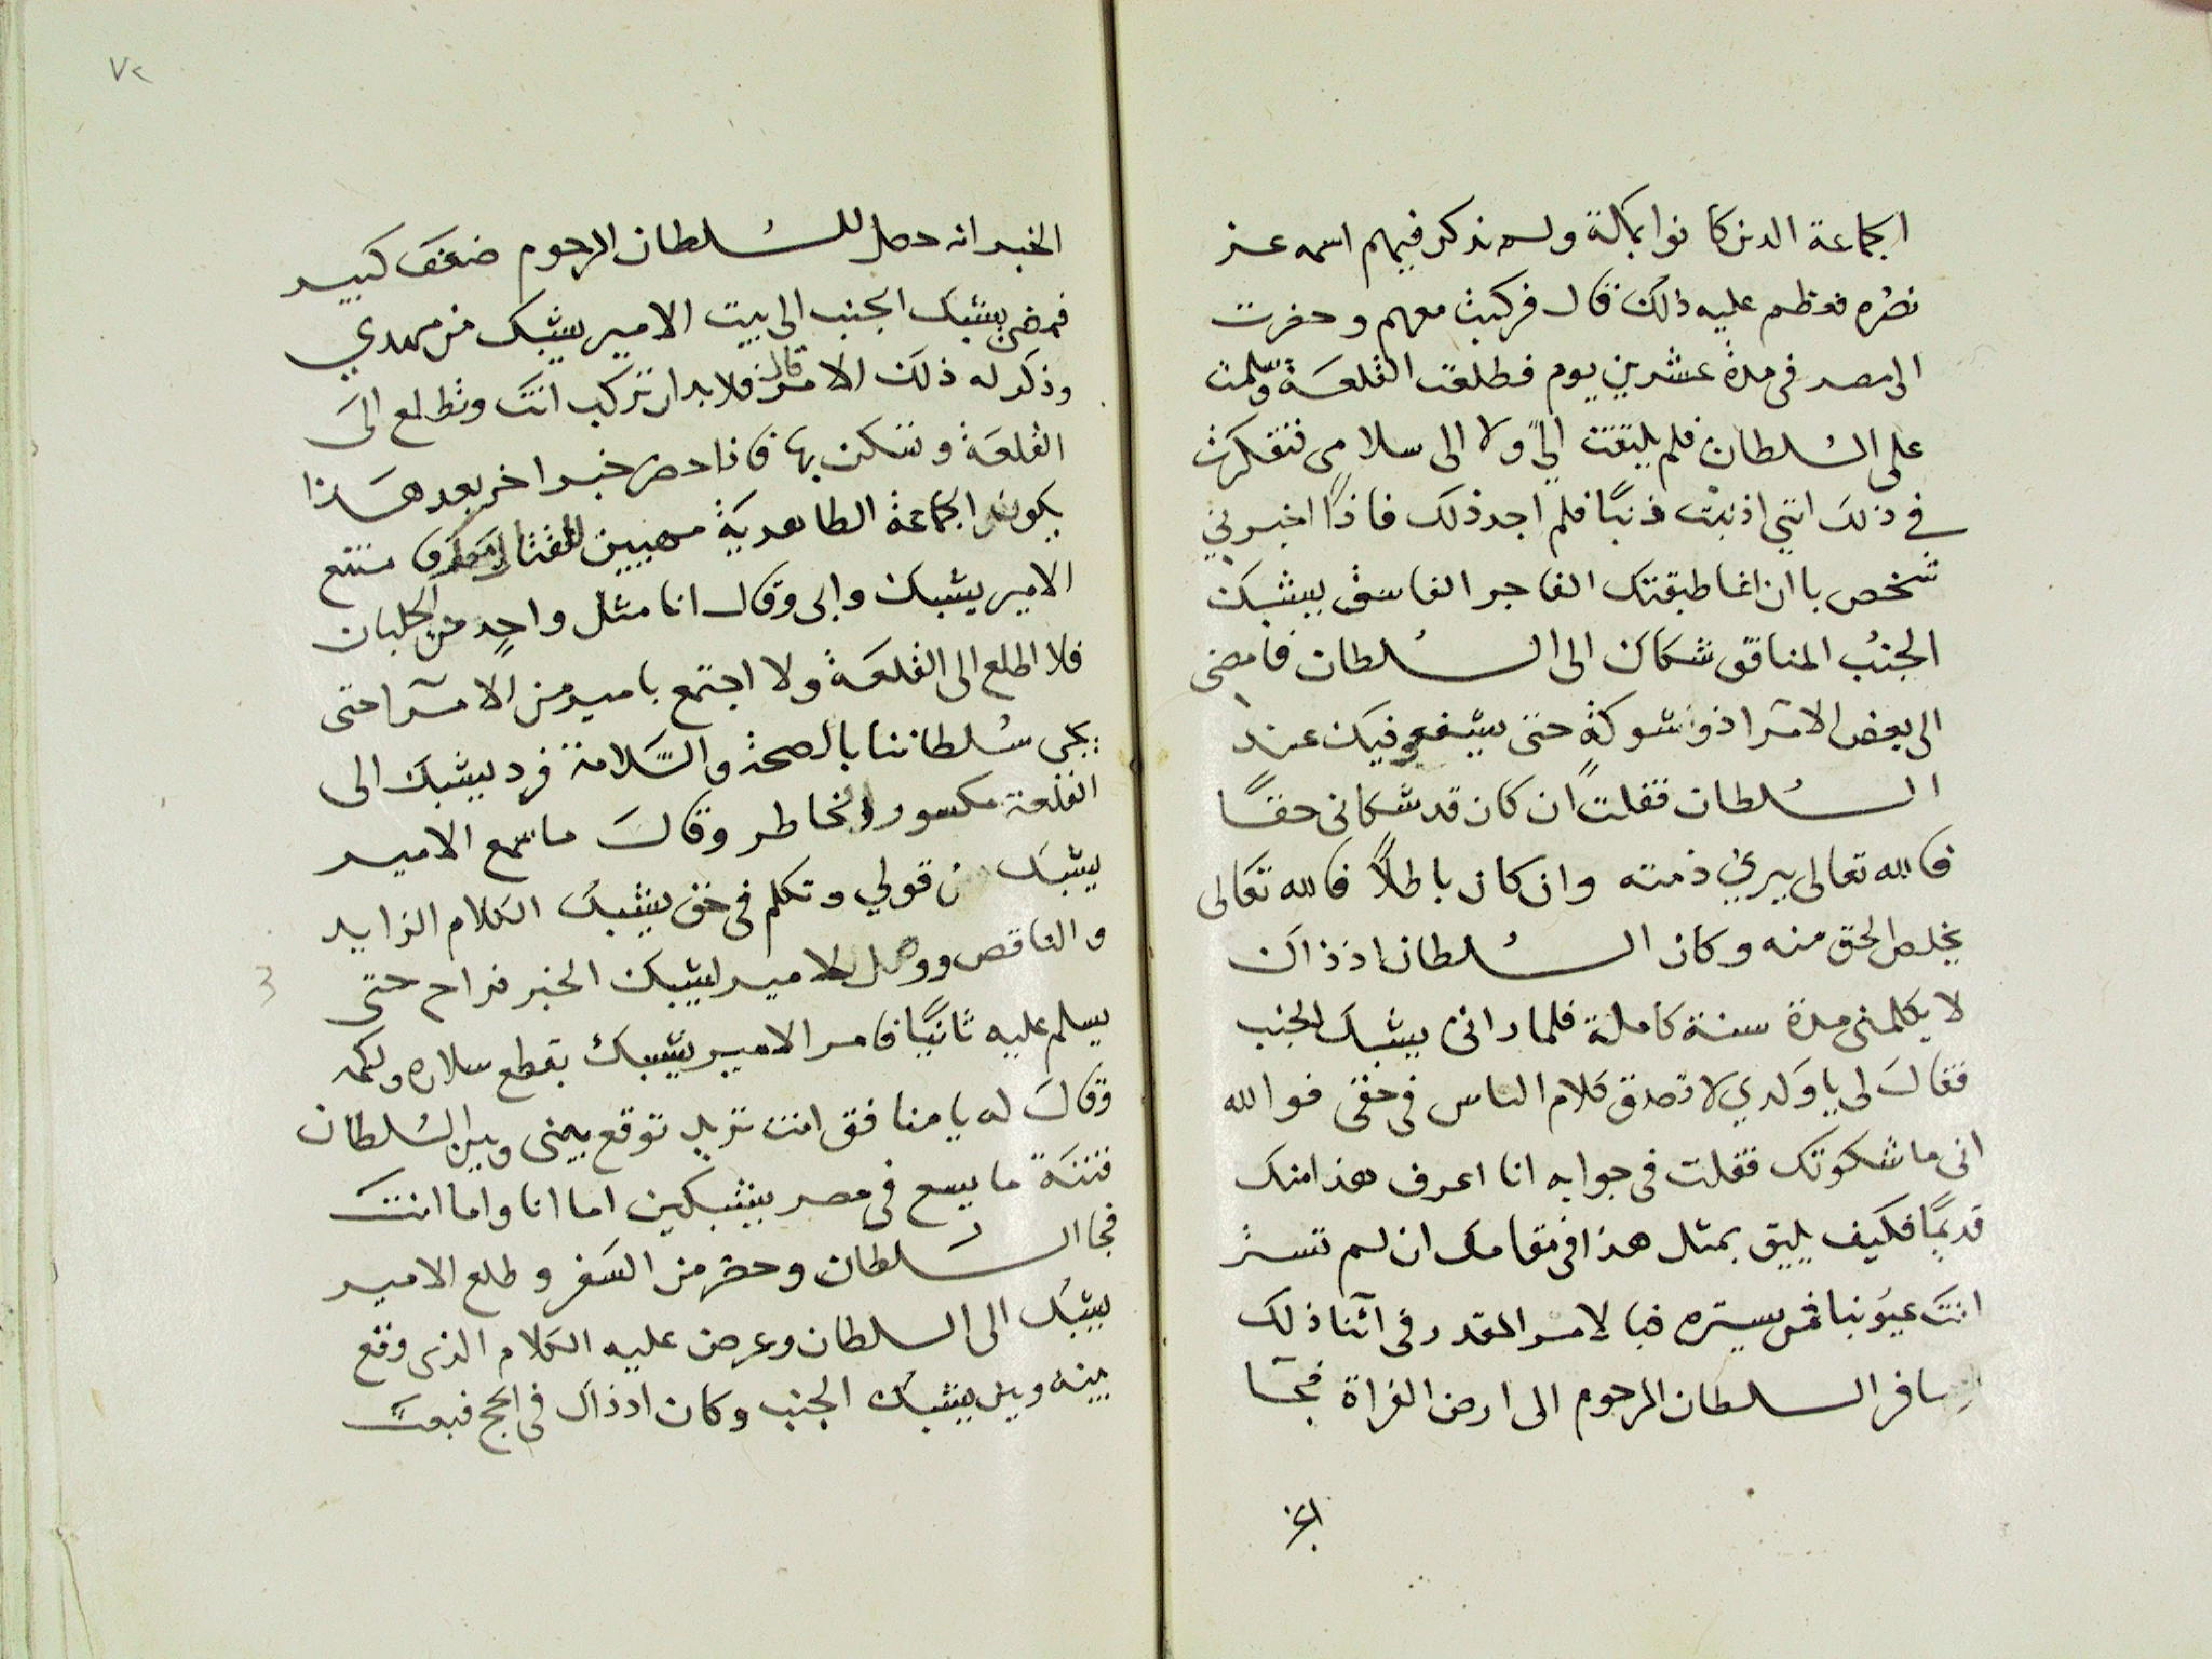 الجماعة الدين كانوا بكالة ولم نذكر فيهم اسمه عز
نصره فعظم عليه ذلك قال فركبت معهم وحضرت
الى مصر فى مدة عشرين يوم فطلعت القلعة وسلمت
على السلطان فلم يلتفت اليّ ولا الى سلامى فتفكرت
في ذلك انني اذنبت ذنبًا فلم اجد ذلك فاذًا اخبرني
شخص باان اغا طبقتك الفاجر الفاسق يشبك
الجنب المنافق شكاك الى السلطان فامضى
الى بعض الامرا ذو شوكة حتى يشفع فيك عند
السلطان فقلت ان كان قد شكانى حقًا
فالله تعالى يبرئ ذمته وان كان باطلًا فالله تعالى
يخلص الحق منه وكان السلطان اذ ذاك
لا يكلمنى مدة سنة كاملة فلما رانى يشبك الجنب
فقال لى يا ولدي لا تصدق كلام الناس فى حقى فوالله
انى ما شكوتك فقلت فى جوابه انا اعرف هذا منك
قديمًا فكيف يليق بمثل هذا فى مقامك ان لم تستر
انت عيوبنا فمن يستره فبالامر المقدر فى اثنا ذلك
سافر السلطان المرحوم الى ارض الفراة فجا
الخبر
٧٢
الخبر انه حصل للسلطان المرحوم ضعف كبير
فمضى يشبك الجنب الى بيت الامير يشبك من مهدي
وذكر له ذلك الامر قال فلا بد ان تركب انت وتطلع الى
القلعة وتسكن بها فاذا حضر خبر اخر بعد هذا
يكون الجماعة الطاهرية مهيين للقتال فامتنع
الامير يشبك وابى وقال انا مثل واحد من الجلبان
فلا اطلع الى القلعة ولا اجتمع بامير من الامرا حتى
يجى سلطاننا بالصحة والسلامة فرد يشبك الى
القلعة مكسور الخاطر وقال ما سمع الامير
يشبك من قولي وتكلم فى حق يشبك الكلام الزايد
والناقص ووصل للامير يشبك الخبر فراح حتى
يسلم عليه ثانيًا فامر الامير يشبك بقطع سلاره ولكمه
وقال له يا منافق انت تريد توقع بينى وبين السلطان
فتنة ما يسع فى مصر يشبكين اما انا واما انت
فجا السلطان وحضر من السفر وطلع الامير
يشبك الى السلطان وعرض عليه الكلام الذى وقع
بينه وبين يشبك الجنب وكان اذ ذاك فى الحج فبعث